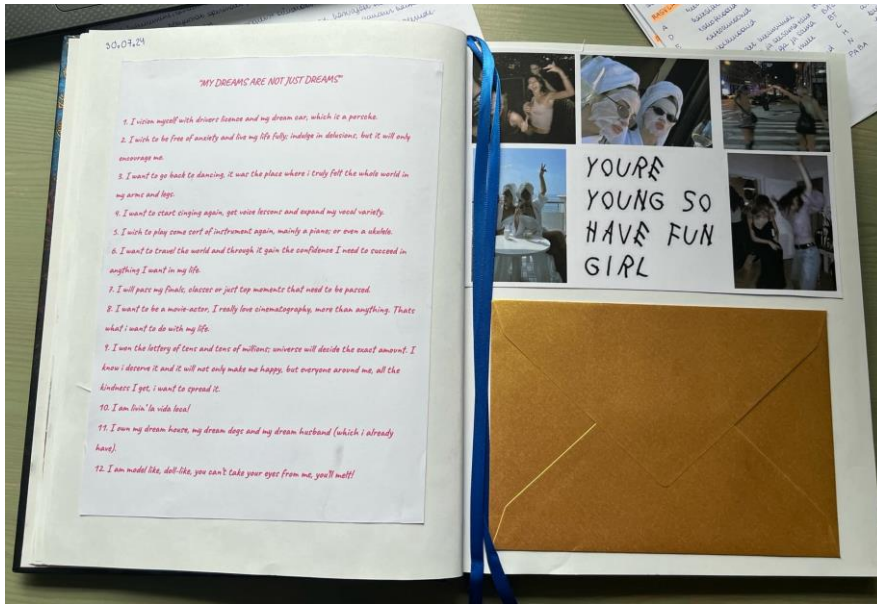 30.07.24
"MY DREAMS ARE NOT JUST DREAMS"
1. I vision myself with drivers license and my dream car, which is a porsche.
2. I wish to be free of anxiety and live my life fully; indulge in delusions, but it will only
encourage me.
3. I want to go back to dancing, it was the place where i truly felt the whole world in
my arms and legs.
4. I want to start singing again, get voice lessons and expand my vocal variety.
5. I wish to play some sort of instrument again, mainly a piano; or even a ukulele.
6. I want to travel the world and through it gain the confidence I need to succeed in
anything I want in my life.
7. I will pass my finals, classes or just top moments that need to be passed.
8. I want to be a movie-actor, I really love cinematography, more than anything. Thats
what i want to do with my life.
9. I won the lottery of tons and tons of millions; universe will decide the exact amount. I
know i deserve it and it will not only make me happy, but everyone around me, all the
kindness I get, i want to spread it.
10. I am livin' la vida loca!
11. I own my dream house, my dream dogs and my dream husband (which i already
have).
12. I am model like, doll-like, you can't take your eyes from me, you'll melt!
YOURE
YOUNG SO
HAVE FUN
GIRL